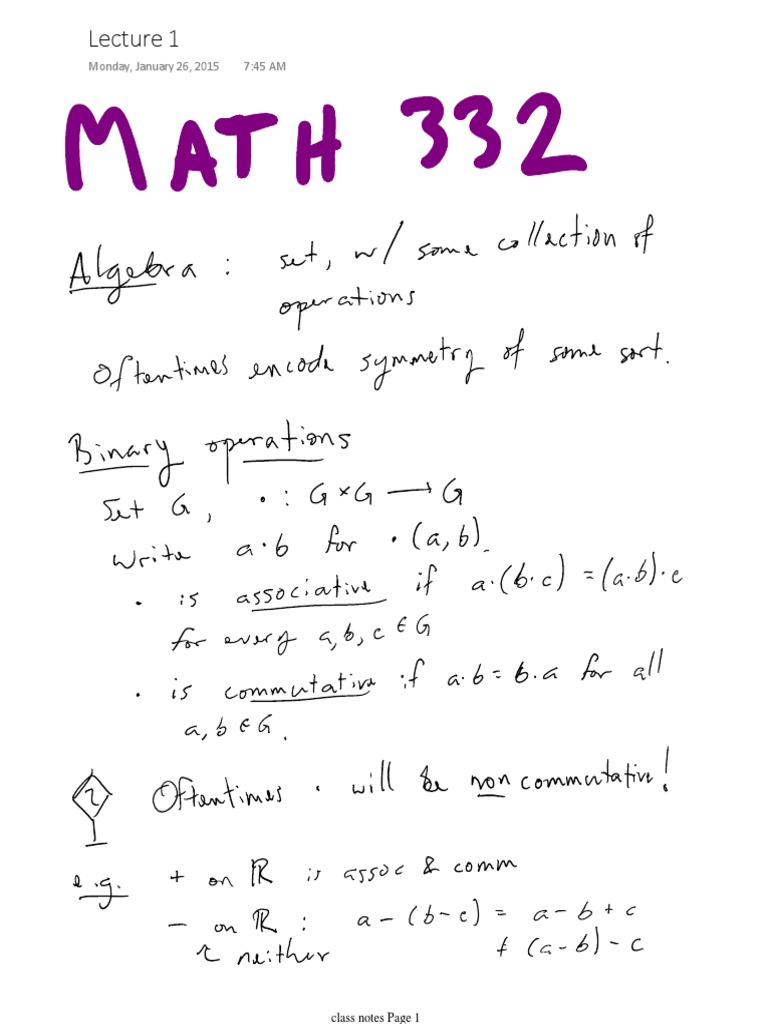 Lecture 1
Monday, January 26, 2015 7:45 AM
MATH 332
Algebra : set, w/ some collection of
operations
Oftentimes encode symmetry of some sort.
Binary operations
Set G, · : G × G → G
Write a·b for ·(a,b).
· is associative if a·(b·c) = (a·b)·c
for every a,b,c ∈ G
· is commutative if a·b = b·a for all
a,b ∈ G.
Oftentimes · will be non commutative!
e.g. + on ℝ is assoc & comm
− on ℝ : a − (b − c) = a − b + c
↑ neither ≠ (a − b) − c
class notes Page 1